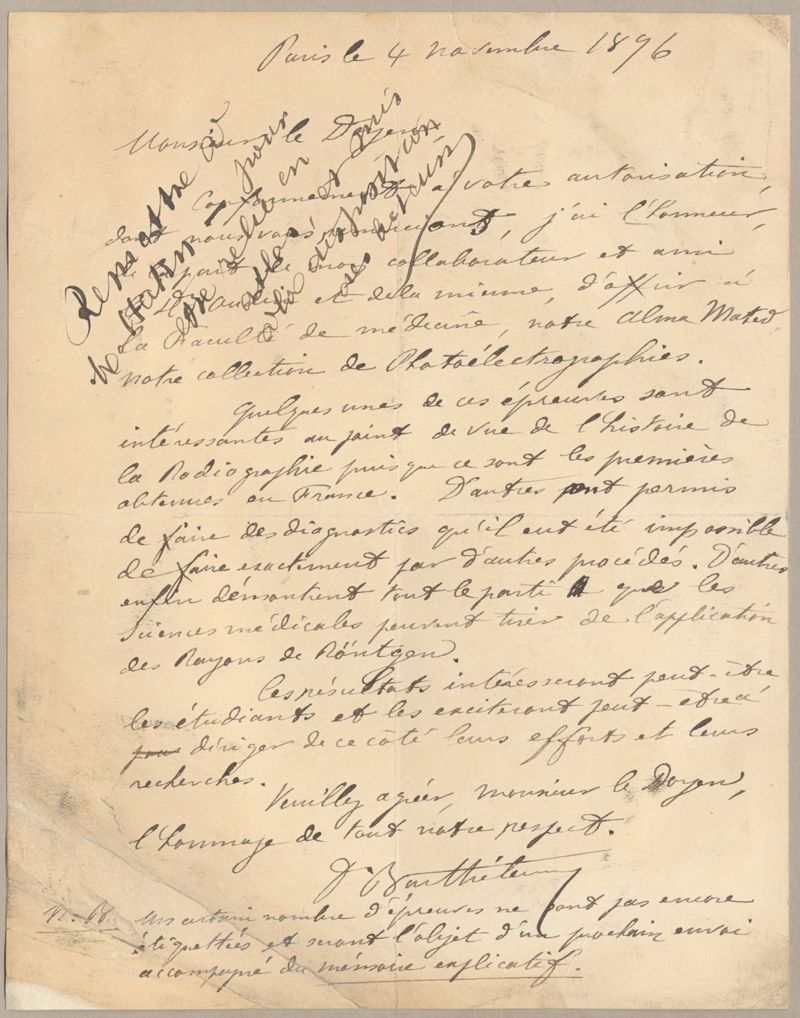 Paris le 4 novembre 1896
Monsieur le Doyen
Conformément à votre autorisation,
dont nous vous remercions, j'ai l'honneur,
de la part de mon collaborateur et ami
le Dr Oudin et de la mienne, d'offrir à
la Faculté de médecine, notre Alma Mater,
notre collection de Photoélectrographies.
Quelques unes de ces épreuves sont
intéressantes au point de vue de l'histoire de
la Radiographie puisque ce sont les premières
obtenues en France. D'autres ont permis
de faire des diagnostics qu'il eut été impossible
de faire exactement par d'autres procédés. D'autres
enfin démontrent tout le parti que les
Sciences médicales peuvent tirer de l'application
des Rayons de Röntgen.
Ces résultats intéresseront peut-être
les étudiants et les exciteront peut-être à
pour diriger de ce côté leurs efforts et leurs
recherches.
Veuillez agréer, monsieur le Doyen,
l'hommage de tout notre respect.
Dr Barthélemy
N.B. Un certain nombre d'épreuves ne sont pas encore
étiquettées et seront l'objet d'un prochain envoi
accompagné du mémoire explicatif.
Remettre à
M Hahn pour
être relié en
atlas et mis
à la disposition
des lecteurs